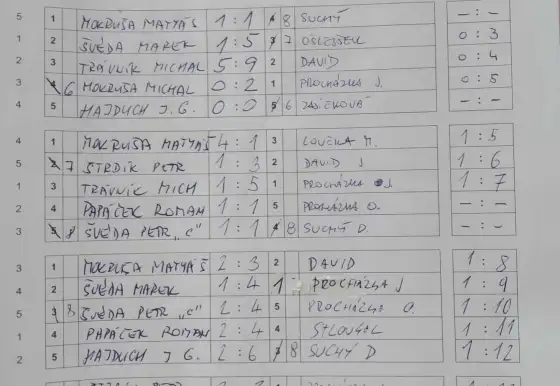 5 1 MOKRUŠA MATYÁŠ 1 : 1 8 SUCHÝ - : -
2 ŠVÉDA MAREK 1 : 5 7 0 : 3
3 TRÁVNÍK MICHAL 5 : 9 2 DAVID 0 : 4
3 6 MOKRUŠA MICHAL 0 : 2 1 PROCHÁZKA J. 0 : 5
4 5 HAJDUCH J. G. 0 : 0 6 - : -
4 1 MOKRUŠA MATYÁŠ 4 : 1 3 LOUČKA M. 1 : 5
5 7 STRDÍK PETR 1 : 3 2 DAVID J 1 : 6
1 3 TRÁVNÍK MICH 1 : 5 1 PROCHÁZKA J 1 : 7
2 4 PAPÁČEK ROMAN 1 : 1 5 PROCHÁZKA O. - : -
3 8 ŠVÉDA PETR "C" 1 : 1 8 SUCHÝ D. - : -
3 1 MOKRUŠA MATYÁŠ 2 : 3 2 DAVID 1 : 8
4 2 ŠVÉDA MAREK 1 : 4 1 PROCHÁZKA J 1 : 9
5 8 ŠVÉDA PETR "C" 2 : 4 5 PROCHÁZKA O. 1 : 10
1 4 PAPÁČEK ROMAN 2 : 4 4 1 : 11
2 5 HAJDUCH J G. 2 : 6 8 SUCHÝ D 1 : 12